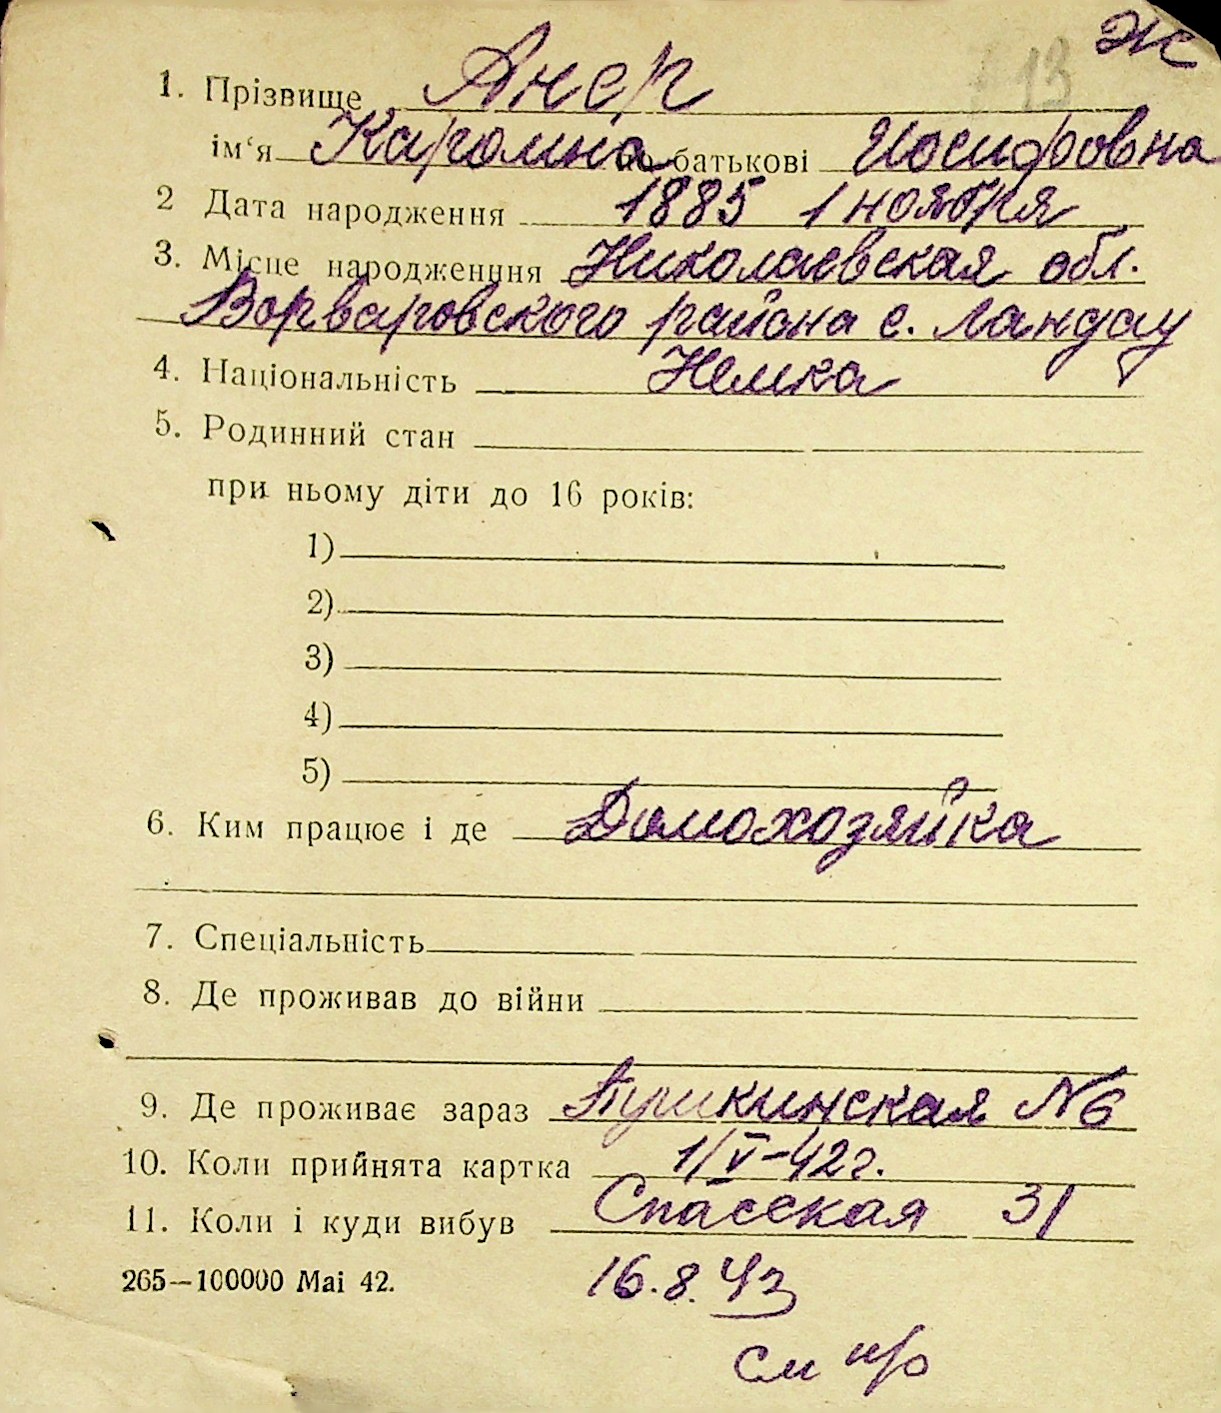 Ж
13
1. Прізвище Анер
ім‘я Каролина по-батькові Иосифовна
2 Дата народження 1885 1 ноября
3. Місце народженння Николаевская обл.
Ворваровского района с. Ландау
4. Національність Немка
5. Родинний стан
при ньому діти до 16 років:
1)
2)
3)
4)
5)
6. Ким працює і де Домохозяйка
7. Спеціальність
8. Де проживав до війни
9. Де проживає зараз Пушкинская №6
10. Коли прийнята картка 1/V-42г.
11. Коли і куди вибув Спасская 31
265—100000 Mai 42. 16.8.43
см